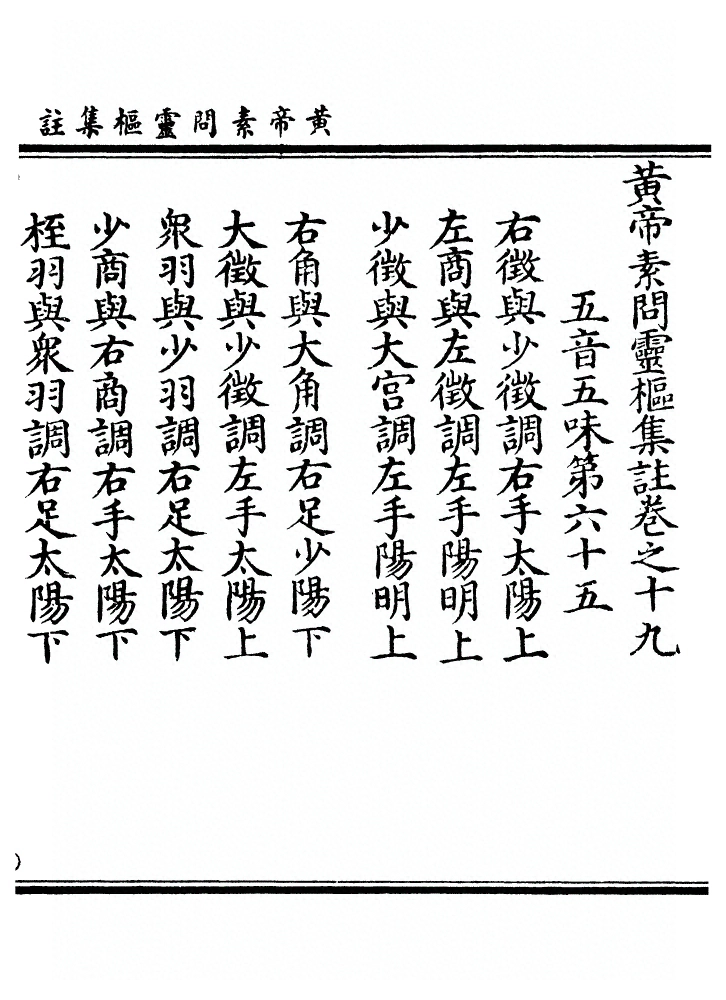 黃帝素問靈樞集註
黃帝素問靈樞集註卷之十九
五音五味第六十五
右徵與少徵調右手太陽上
左商與左徵調左手陽明上
少徵與大宮調左手陽明上
右角與大角調右足少陽下
大徵與少徵調左手太陽上
衆羽與少羽調右足太陽下
少商與右商調右手太陽下
桎羽與衆羽調右足太陽下